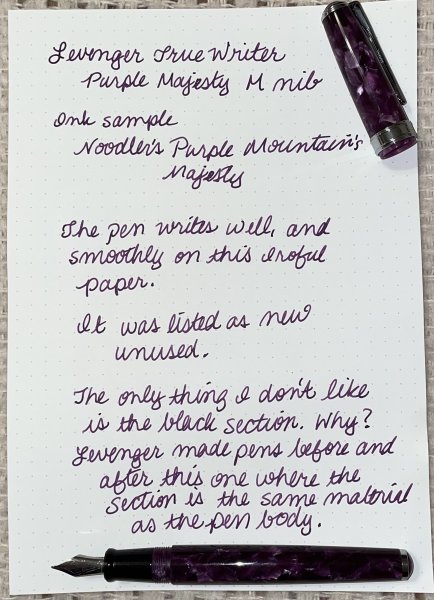 Levenger True Writer
Purple Majesty M nib
Ink sample
Noodler's Purple Mountain's
Majesty
The pen writes well, and
smoothly on this Iroful
paper.
It was listed as new
unused.
The only thing I don't like
is the black section. Why?
Levenger made pens before and
after this one where the
section is the same material
as the pen body.